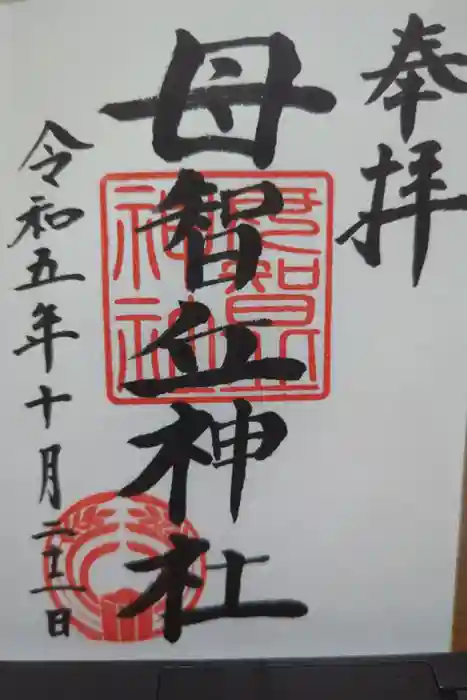 奉拝
母智丘神社
令和五年十月二十二日
母智丘
神社